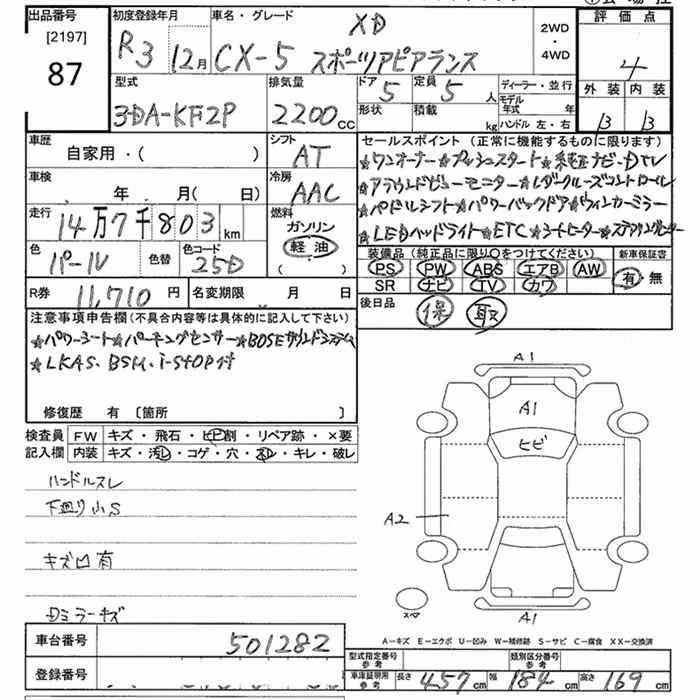 出品番号
[2197]
87
初度登録年月
R3 12月
車名・グレード
XD
CX-5 スポーツアピアランス
2WD
・
4WD
評価点
4
外装 内装
B B
型式
3DA-KF2P
排気量
2200cc
ドア 5
定員 5人
形状
積載 kg
ディーラー・並行
モデル年式 年
ハンドル 左・右
車歴
自家用・( )
シフト
AT
車検
年 月( 日)
冷房
AAC
走行
14万7千803km
燃料
ガソリン
軽油
( )
色
パール
色替
色コード
25D
R券 11,710円
名変期限 月 日
セールスポイント(正常に機能するものに限ります)
★ワンオーナー★プッシュスタート★純正ナビ・DTV
★アラウンドビューモニター★レダクルーズコントロール
★パドルシフト★パワーバックドア★ウィンカーミラー
★LEDヘッドライト★ETC★シートヒーター★ステアリングヒーター
装備品(純正品に限り〇をつけてください)
PS PW ABS エアB AW
SR ナビ TV カワ
新車保証書
有・無
後日品 保 取
注意事項申告欄(不具合内容等は具体的に記入して下さい)
★パワーシート★パーキングセンサー★BOSEサウンドシステム
★LKAS、BSM、i-STOP付
修復歴 有〔箇所 〕
検査員記入欄
FW キズ・飛石・ヒビ割・リペア跡・×要
内装 キズ・汚レ・コゲ・穴・スレ・キレ・破レ
ハンドルスレ
下廻り小S
キズ凹有
Dミラーキズ
A1
A1
ヒビ
A2
スペア
A1
A-キズ E-エクボ U-凹み W-補修跡 S-サビ C-腐食 XX-交換済
車台番号 501282
登録番号
型式指定番号 参考
類別区分番号 参考
車庫証明用 参考 長さ 457cm 幅 184cm 高さ 169cm